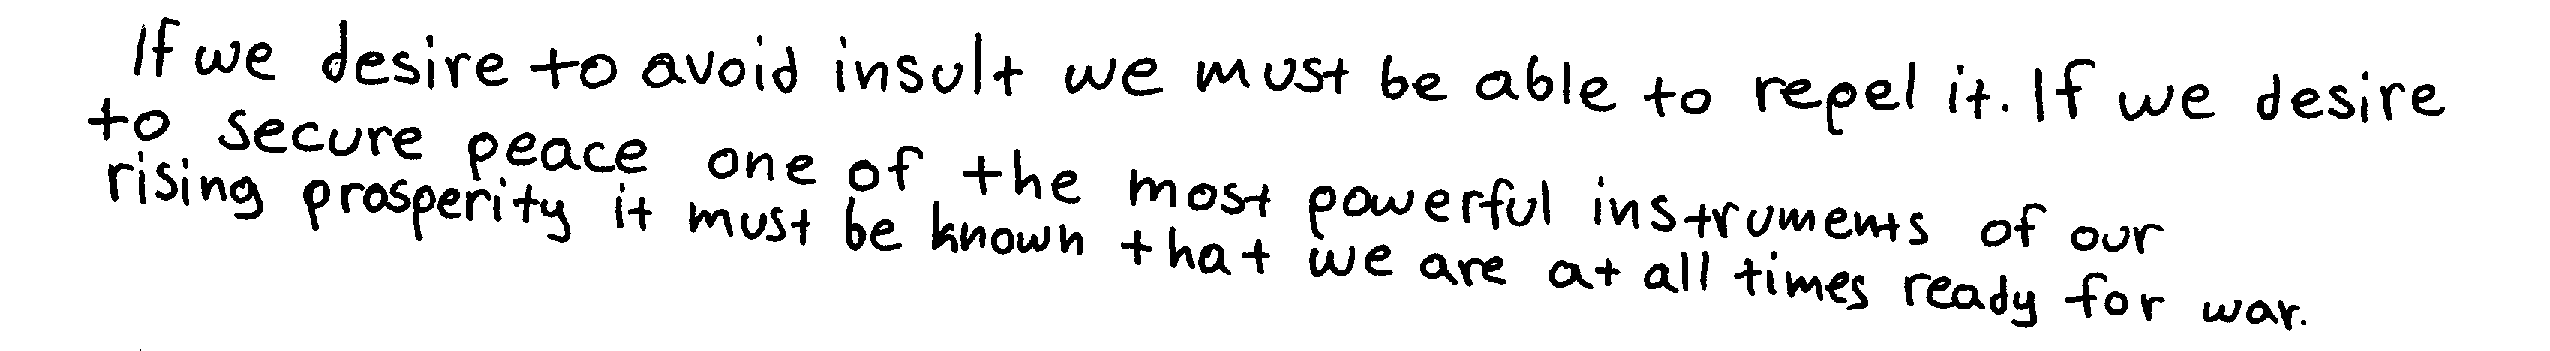 If we desire to avoid insult we must be able to repel it. If we desire
to secure peace one of the most powerful instruments of our
rising prosperity it must be known that we are at all times ready for war.